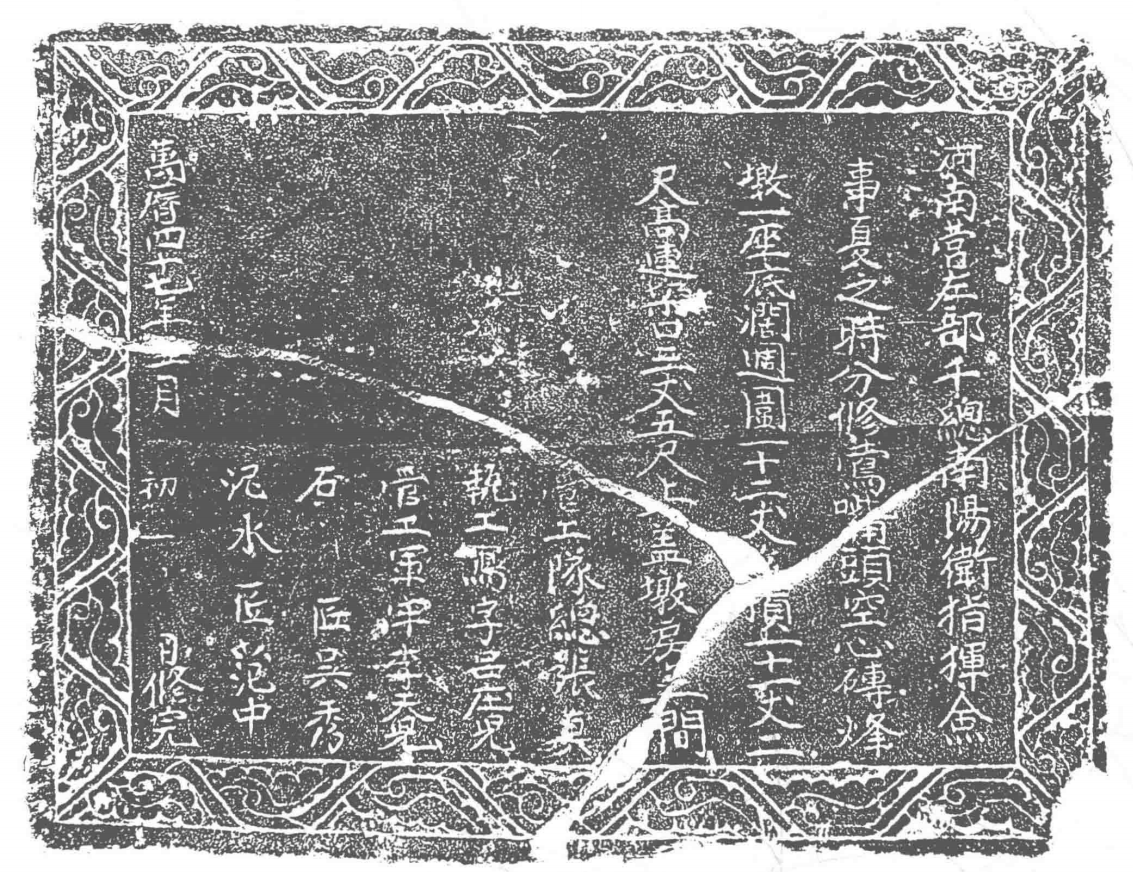 河南营左部千總南陽衛指揮僉
事夏之時分修鴬嘴頭空心磚烽
墩一座底濶週圍一十二丈頂十一丈二
尺高連垛口三丈五尺上盖墩房一間
管工隊總張真
執工寫字吕應兒
管工軍牢李
石匠吴秀
泥水匠范中
萬曆四十七年二月初一日修完